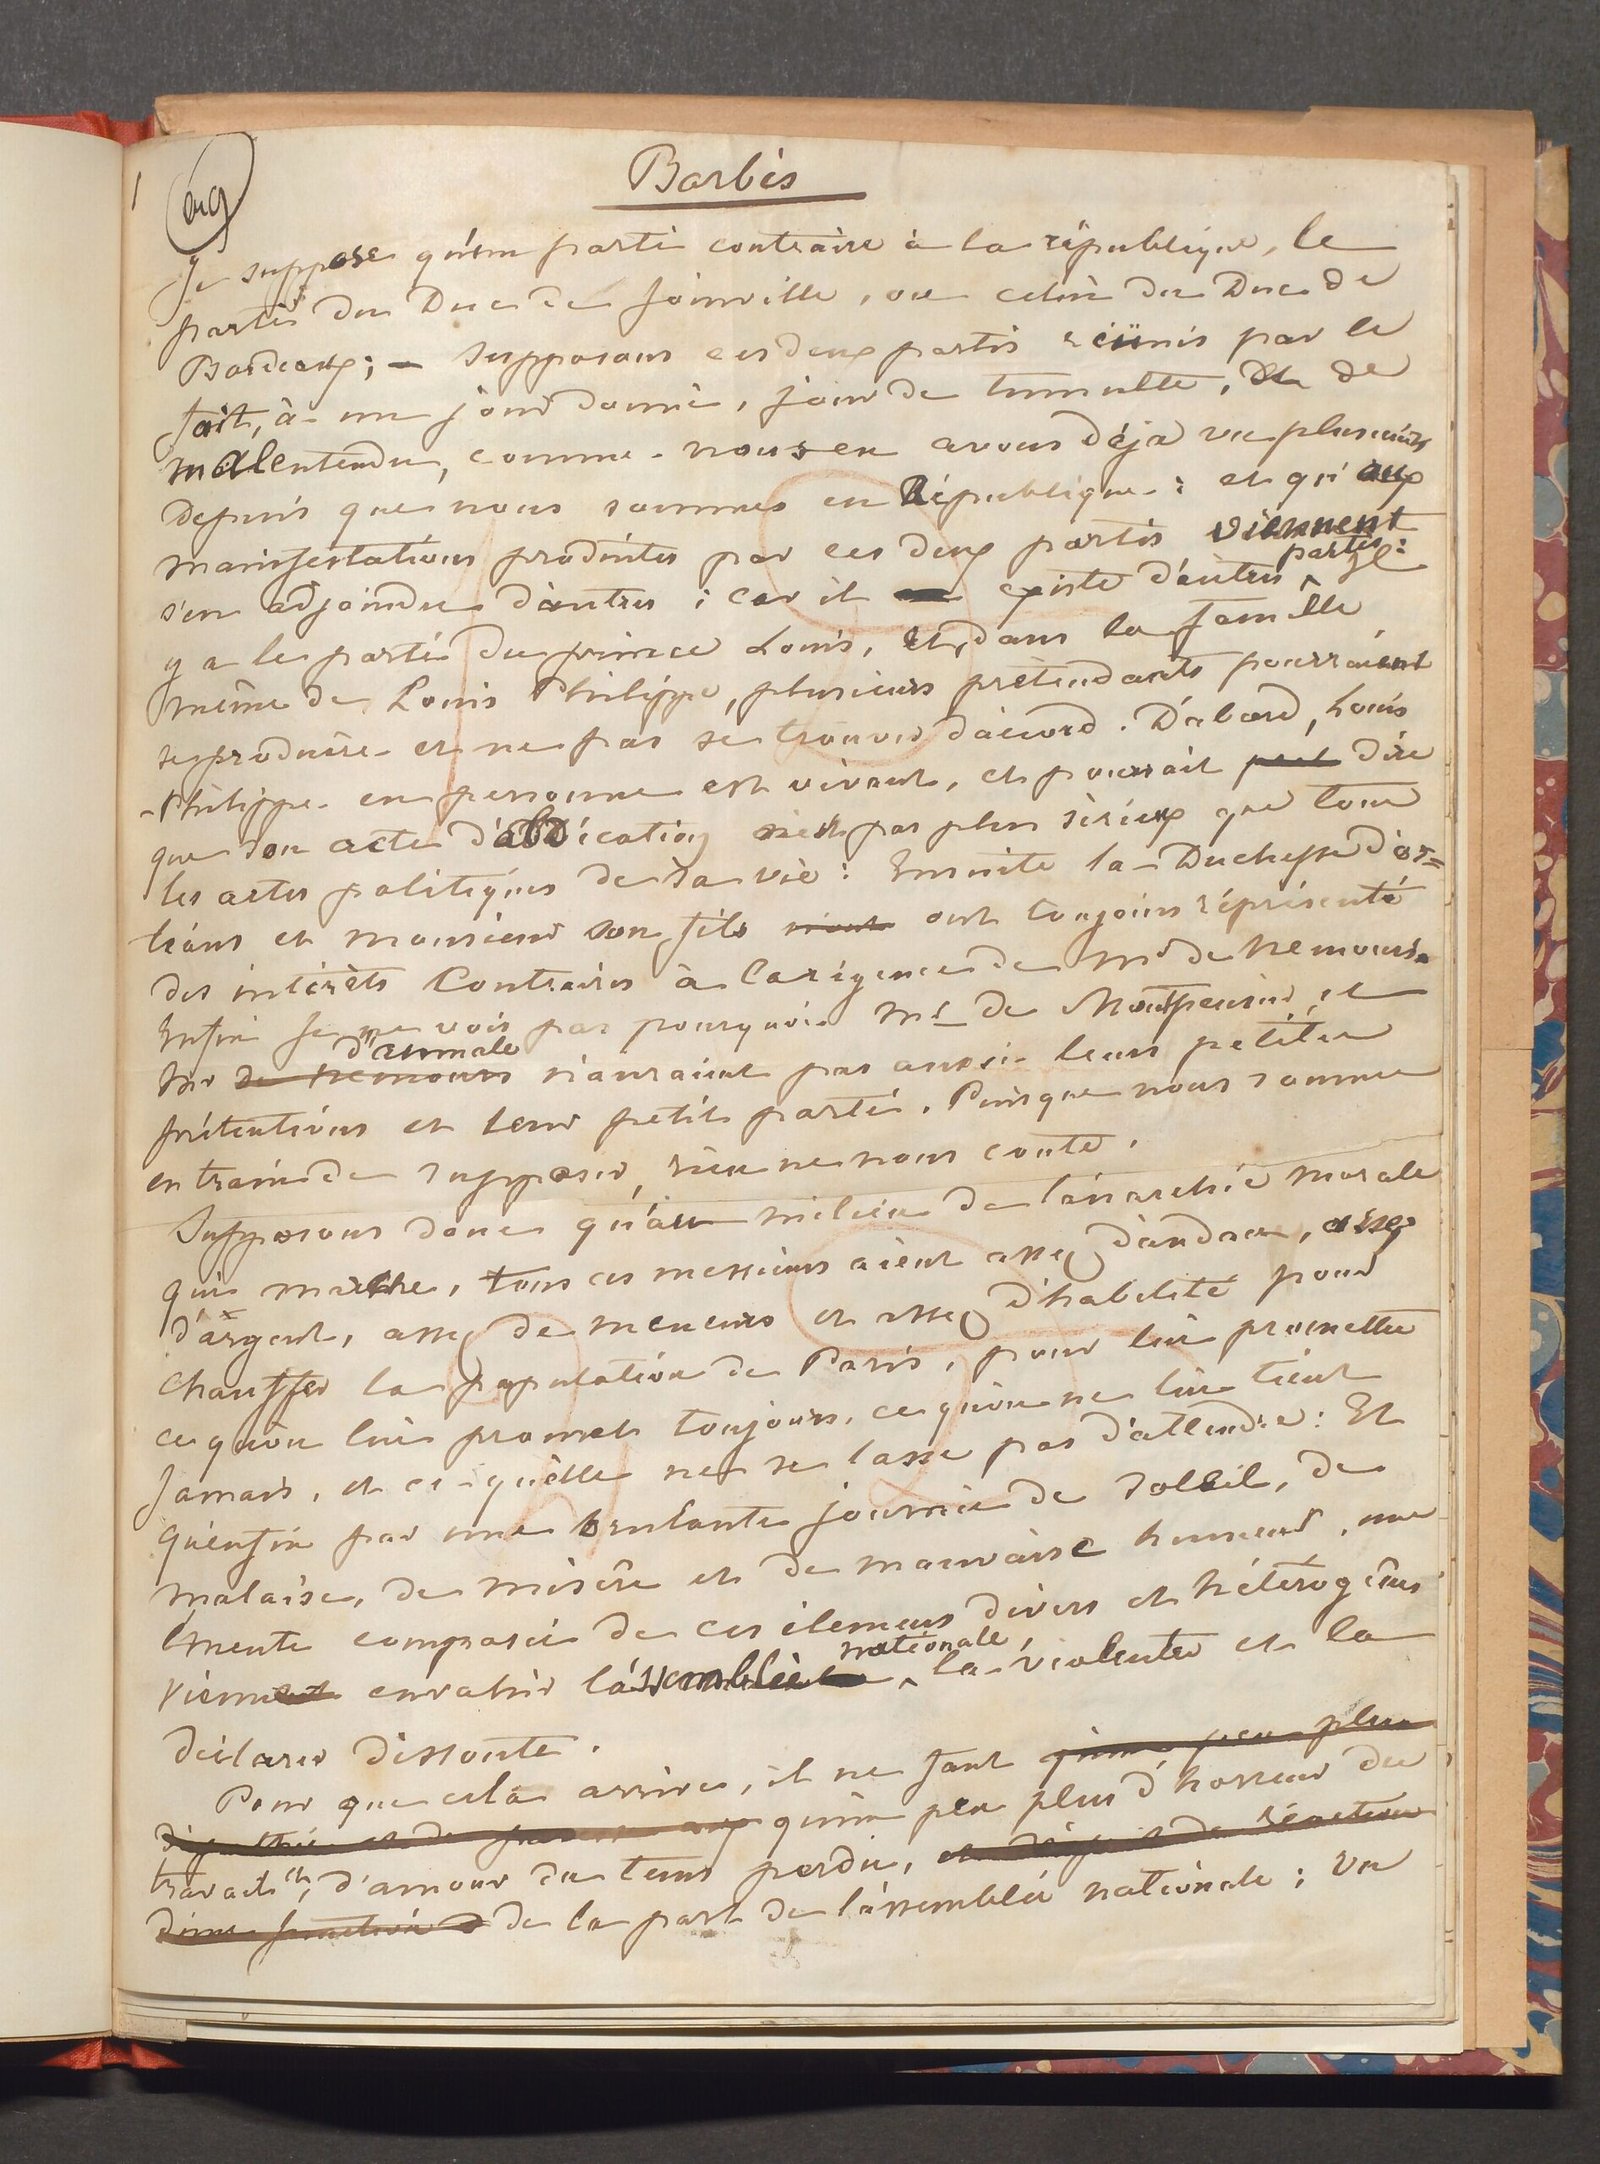 1
Barbès
Je suppose qu'un parti contraire à la république, le
parti du Duc de Joinville, ou celui du Duc de
Bordeaux; – supposons ces deux partis réünis par le
fait, à un jour donné, jour de tumulte, de
malentendu, comme nous en avons déja vu plusieurs
depuis que nous sommes en République: et qu'aux
manifestations produites par ces deux partis viennent
s'en adjoindre d'autres; car il existe d'autres partis: Il
y a le parti du prince Louis, et, dans la famille
même de Louis Philippe, plusieurs prétendants pourraient
se produire et ne pas se trouver d'accord. D'abord, Louis
-Philippe en personne est vivant, et pourrait peut dire
que son acte d'abdication n'est pas plus sérieux que tous
les actes politiques de sa vie: Ensuite la Duchesse d'or=
léans et monsieur son fils ont toujours réprésenté
des intérêts Contraires à la régence de Mr de Nemours.
Enfin Je ne vois pas pourquoi Mr de Montpensier et
Mr de Nemours d'aumale n'auraient pas aussi leurs petites
prétentions et leur petit parti. Puisque nous sommes
en train de supposer, rien ne nous coute.
Supposons donc qu'au milieu de l'anarchie morale
qui marche, tous ces messieurs aient assez d'audace, assez
d'argent, assez de meneurs et assez d'habileté pour
chauffer la population de Paris, pour lui promettre
ce qu'on lui promet toujours, ce qu'on ne lui tient
Jamais, et ce qu'elle ne se lasse pas d'attendre: Et
qu'enfin par une brulante journée de soleil, de
malaise, de misère et de mauvaise humeur, une
émeute composée de ces élemens divers et hétérogènes
vienne envahir l'assemblée nationale, la violenter et la
déclarer dissoute.
Pour que cela arrive, il ne faut qu'un peu plus
qu'un peu plus d'horreur du
travail, d'amour du tems perdu,
de la part de l'assemblée nationale; un